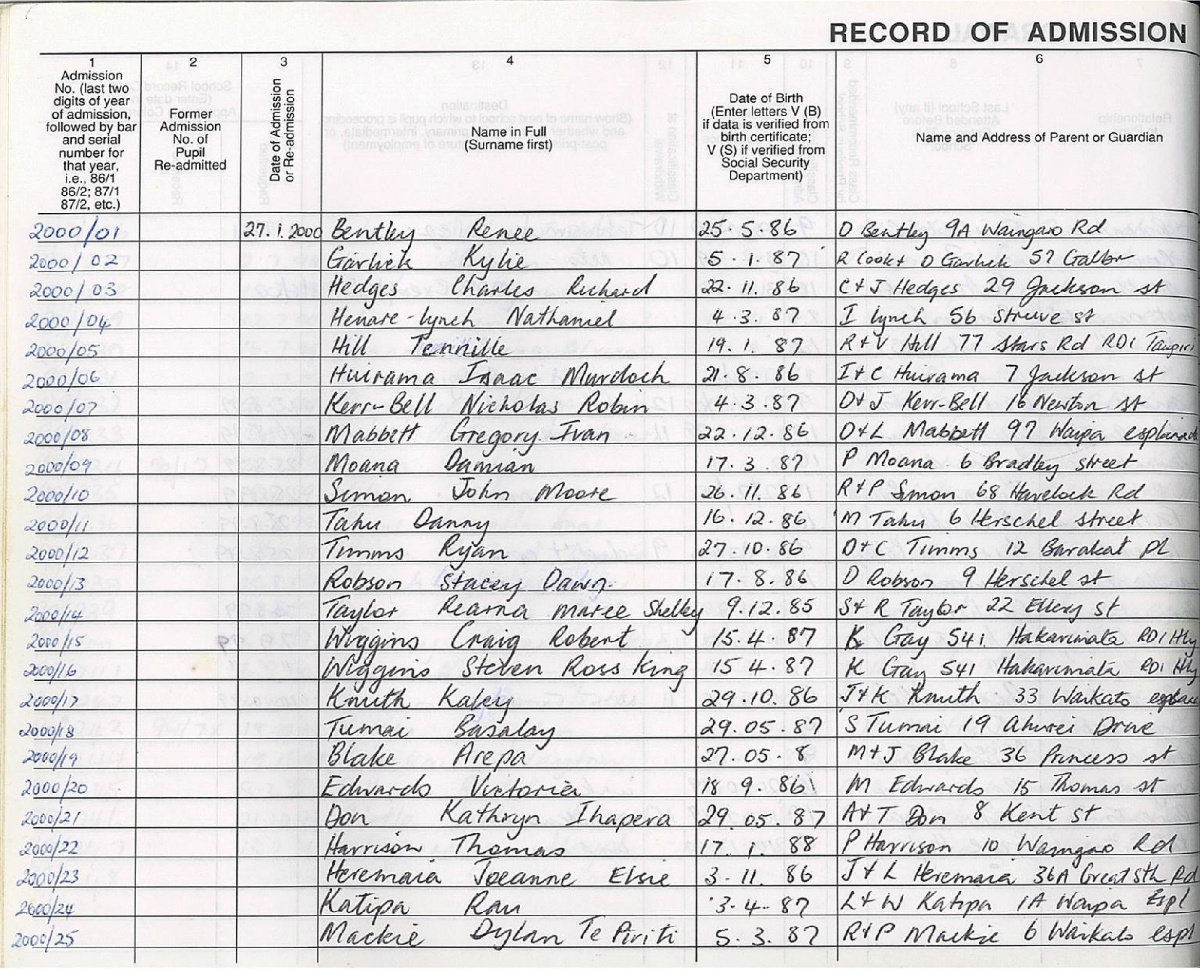 RECORD OF ADMISSION
1 2 3 4 5 6
Admission No. (last two digits of year of admission, followed by bar and serial number for that year, i.e., 86/1 86/2; 87/1 87/2, etc.)
Former Admission No. of Pupil Re-admitted
Date of Admission or Re-admission
Name in Full (Surname first)
Date of Birth (Enter letters V (B) if data is verified from birth certificate; V (S) if verified from Social Security Department)
Name and Address of Parent or Guardian
2000/01 27.1.2000 Bentley Renee 25.5.86 D Bentley 9A Waingaro Rd
2000/02 Garlick Kylie 5.1.87 R Cook + D Garlick 57
2000/03 Hedges Charles Richard 22.11.86 C+J Hedges 29 Jackson st
2000/04 Henare-Lynch Nathaniel 4.3.87 I Lynch 56 Struve st
2000/05 Hill Tennille 19.1.87 R+V Hill 77 Stars Rd RD1
2000/06 Huirama Isaac Murdoch 21.8.86 I+C Huirama 7 Jackson st
2000/07 Kerr-Bell Nicholas Robin 4.3.87 D+J Kerr-Bell 16 Newton st
2000/08 Mabbett Gregory Ivan 22.12.86 D+L Mabbett 97 Waipa
2000/09 Moana Damian 17.3.87 P Moana 6 Bradley street
2000/10 Simon John Moore 26.11.86 R+P Simon 68 Havelock Rd
2000/11 Tahu Danny 16.12.86 M Tahu 6 Herschel street
2000/12 Timms Ryan 27.10.86 D+C Timms 12 Barakat pl
2000/13 Robson Stacey Dawn 17.8.86 D Robson 9 Herschel st
2000/14 Taylor Rearna Maree Shelley 9.12.85 S+R Taylor 22 Ellery st
2000/15 Wiggins Craig Robert 15.4.87 K Gay 541 Hakarimata RD1
2000/16 Wiggins Steven Ross King 15 4.87 K Gay 541 Hakarimata RD1
2000/17 Knuth Kaley 29.10.86 J+K Knuth 33 Waikato
2000/18 Tumai Basalay 29.05.87 S Tumai 19 Ahurei Drive
2000/19 Blake Arepa 27.05.8 M+J Blake 36 Princess st
2000/20 Edwards Victoria 18 9.86 M Edwards 15 Thomas st
2000/21 Don Kathryn Ihapera 29.05.87 A+T Don 8 Kent st
2000/22 Harrison Thomas 17.1.88 P Harrison 10 Waingaro Rd
2000/23 Heremaia Joeanne Elsie 3.11.86 J+L Heremaia 36A Great Sth Rd
2000/24 Katipa Rau 3.4.87 L+W Katipa 1A Waipa Espl
2000/25 Mackie Dylan Te Piriti 5.3.87 R+P Mackie 6 Waikato espl